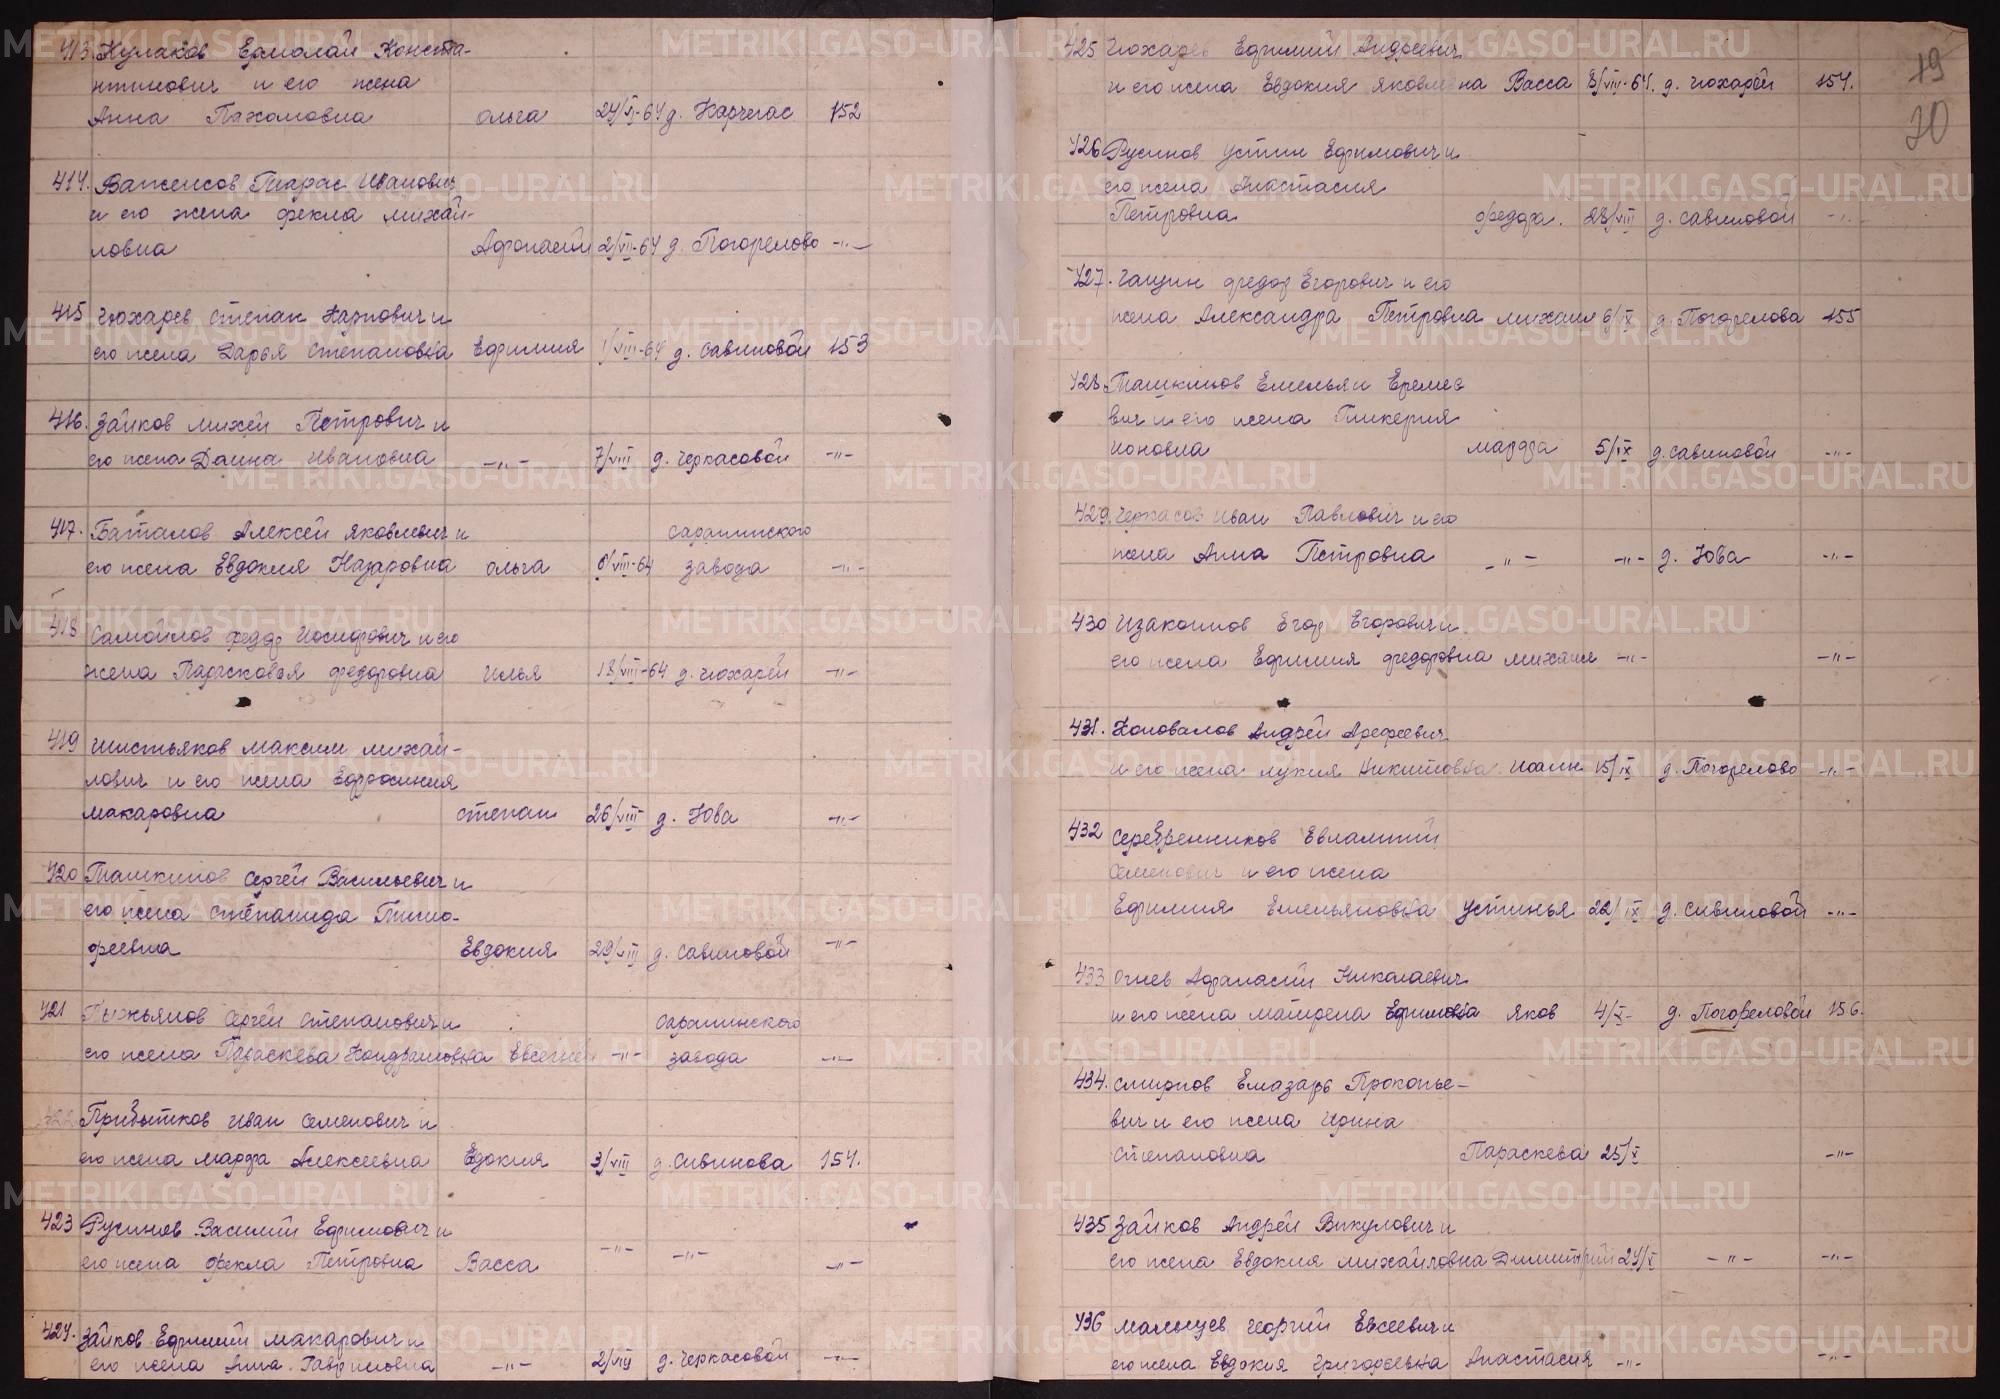 413. Кулаков Ермолай Конста-
нтинович и его жена
Анна Пахомовна Ольга 24/VI-64 д. Карчегас 152
414. Важенсов Тарас Иванович
и его жена Фекла Михай-
ловна Афонасий 2/VII-64 д. Погорелово -"-
415 Чюхарев Степан Карпович и
его жена Дарья Степановна Ефимия 1/VIII-64 д. Савиновой 153
416. Зайков Михей Петрович и
его жена Даина Ивановна -"- 7/VIII д. Черкасовой -"-
417. Баталов Алексей Яковлевич и Саранинского
его жена Евдокия Назаровна Ольга VIII-64 завода -"-
418 Самойлов Федор Иосифович и его
жена Парасковья Федоровна Илья 18/VIII-64 д. Чюхарей -"-
419 Чистяков Максим Михай-
лович и его жена Ефросиния
Макаровна Степан 26/VIII д. Юва -"-
420 Ташкинов Сергей Васильевич и
его жена Степанида Тимо-
феевна Евдокия 29/VIII д. Савиновой -"-
421 Пыжьянов Сергей Степанович и Саранинского
его жена Параскева Кондратовна Евсегней -"- завода -"-
422 Прибытков Иван Семенович и
его жена Марфа Алексеевна Едокия 3/VIII д. Сивинова 154.
423 Русинов Василий Ефимович и
его жена Фекла Петровна Васса -"- -"- -"-
424. Зайков Ефимий Макарович и
его жена Анна Гавриловна -"- 2/VIII д. Черкасовой -"-
19
20
425 Чюхарев Ефимий Андреевич
и его жена Евдокия Яковлена Васса 8/VIII-64. д. Чюхарей 154.
426 Русинов Устин Ефимович и
его жена Анастасия
Петровна Федора. 28/VIII д. Савиновой -"-
427. Гащин Федор Егорович и его
жена Александра Петровна Михаил 6/IX д. Погорелова 155
428 Ташкинов Емельян Еремее
вич и его жена Гликерия
Ионовна Марфа 5/IX д. Савиновой -"-
429. Черкасов Иван Павлович и его
жена Анна Петровна -"- -"- д. Юва -"-
430 Изакоинов Егор Егорович и
его жена Ефимия Федоровна Михаил -"- -"-
431. Коновалов Андрей Арефеевич
и его жена Лукия Никитовна Иоанн 15/IX д. Погорелово -"-
432 Серебренников Евлампий
Семенович и его жена
Ефимия Емельяновна Устинья 22/IX д. Сивиновой -"-
433 Огнев Афанасий Николаевич
и его жена Матрена Ефимовна Яков 4/X- д. Погореловой 156.
434. Смирнов Елазарь Прокопье-
вич и его жена Ирина
Степановна Параскева 25/X -"-
435 Зайков Андрей Викулович и
его жена Евдокия Михайловна Димитрий 24/X -"- -"-
436 Мальцев Георгий Евсеевич и
его жена Евдокия Григорьевна Анастасия -"- -"-
METRIKI.GASO-URAL.RU